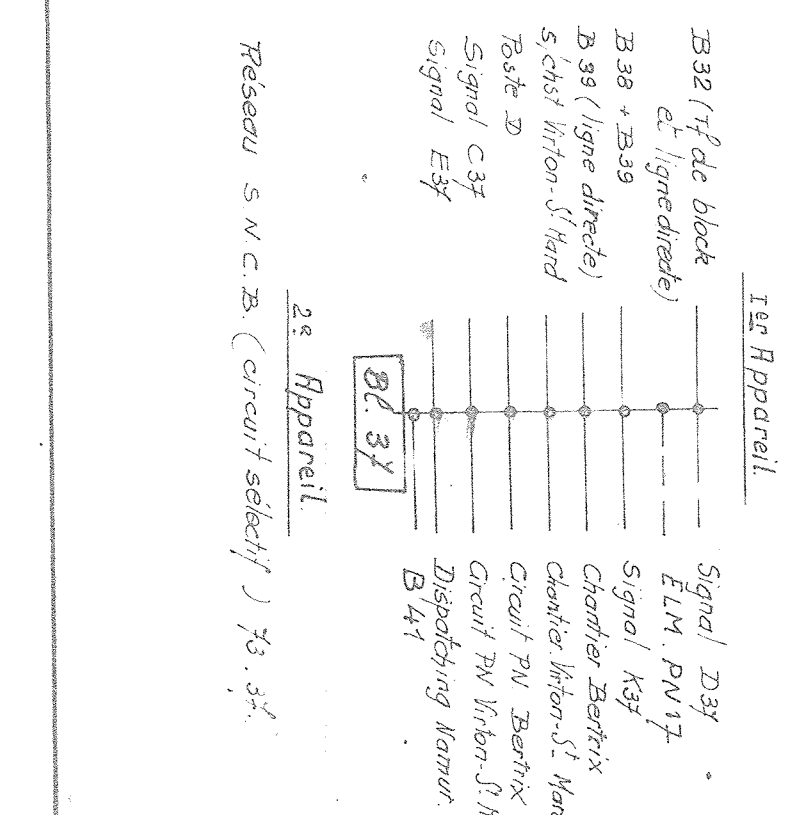 Ier Appareil.
B32 (Tf de block
et ligne directe)
B38 + B39
B39 (ligne directe)
s/chst Virton-St Mard
Poste D
Signal C37
Signal E37
Signal D37
ELM. PN17
Signal K37
Chantier Bertrix
Chantier. Virton-St Mar
Circuit PN. Bertrix
Circuit PN Virton-St M
Dispatching Namur.
B 41
Bl. 37
2e Appareil.
Réseau S.N.C.B. (circuit sélectif) 73.37.